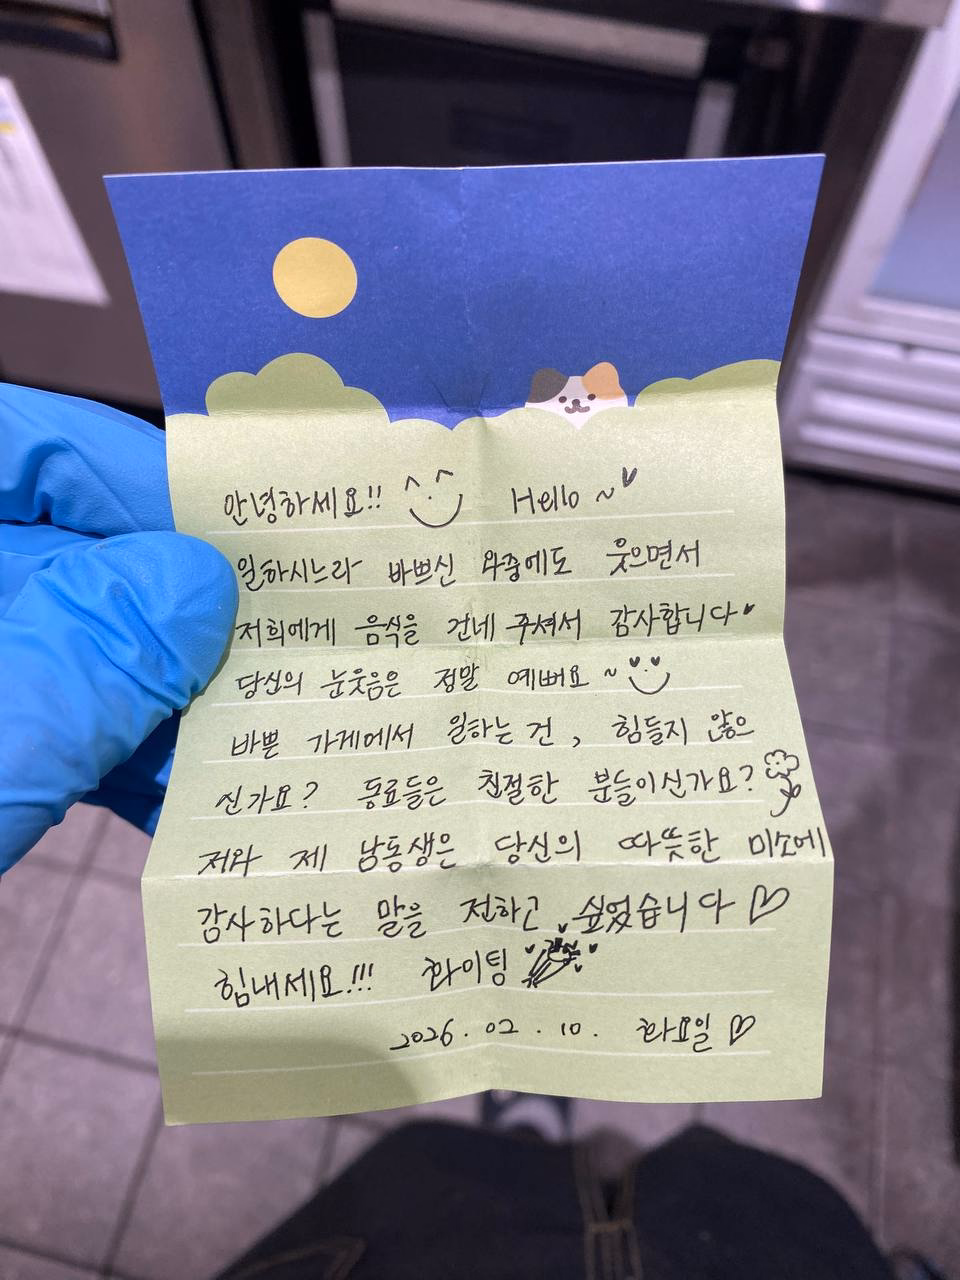 안녕하세요!! Hello ~
일하시느라 바쁘신 와중에도 웃으면서
저희에게 음식을 건네 주셔서 감사합니다
당신의 눈웃음은 정말 예뻐요 ~
바쁜 가게에서 일하는 건, 힘들지 않으
신가요? 동료들은 친절한 분들이신가요?
저와 제 남동생은 당신의 따뜻한 미소에
감사하다는 말을 전하고 싶었습니다 ♡
힘내세요!!! 화이팅
2026. 02. 10. 화요일 ♡